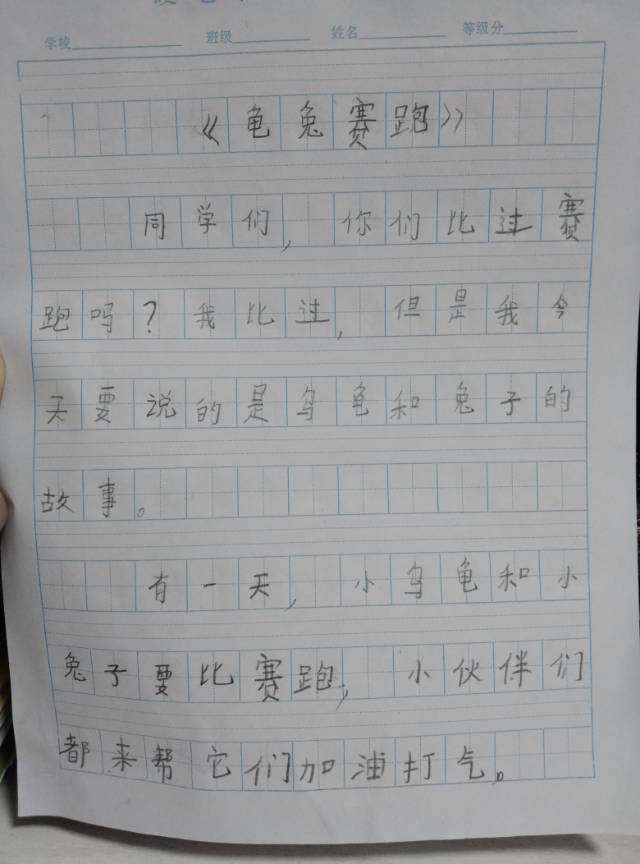 学校 班级 姓名 等级分
《龟兔赛跑》
同学们，你们比过赛
跑吗？我比过，但是我今
天要说的是乌龟和兔子的
故事。
有一天，小乌龟和小
兔子要比赛跑，小伙伴们
都来帮它们加油打气。